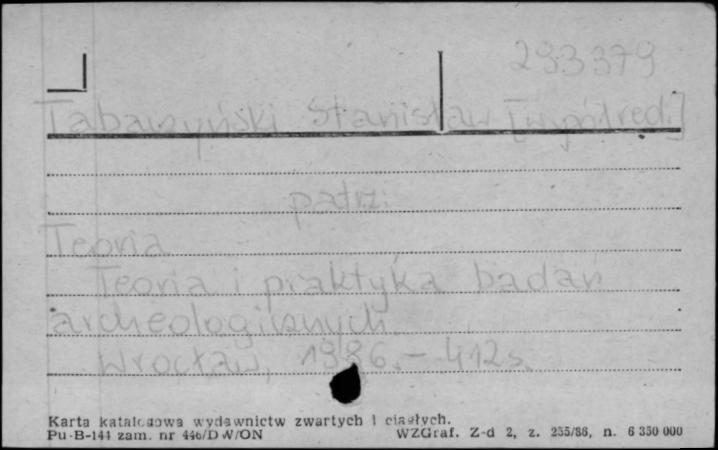 293379
Tabaczyński Stanisław [współred.]
patrz:
Teoria
Teoria i praktyka badań
archeologicznych.
Wrocław, 1986. - 412 s.
Karta katalogowa wydawnictw zwartych i ciągłych.
Pu-B-144 zam. nr 446/DW/ON WZGraf. Z-d 2, z. 255/86, n. 6 350 000